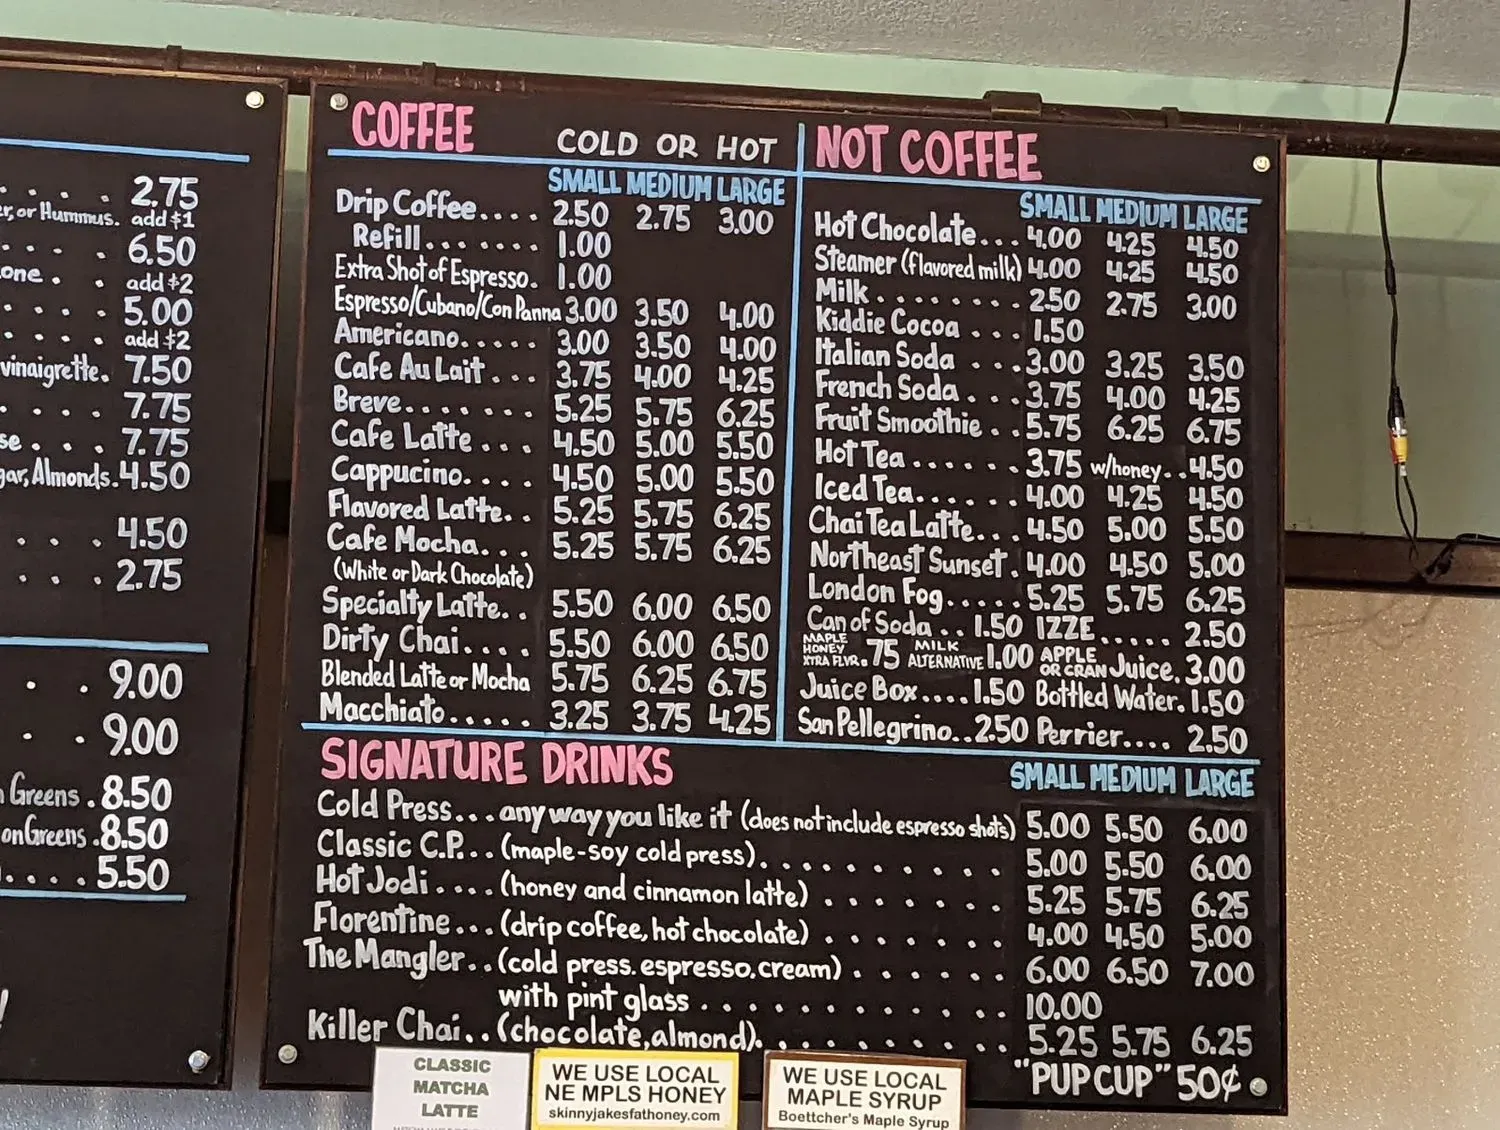 2.75
er, or Hummus. add $1
. . . 6.50
one . . add $2
. . . 5.00
. . . . add $2
vinaigrette. 7.50
. . . . 7.75
se . . . 7.75
gar, Almonds. 4.50
. . . 4.50
. . . 2.75
. . 9.00
. . 9.00
Greens . 8.50
on Greens . 8.50
. . . . 5.50
COFFEE COLD OR HOT
SMALL MEDIUM LARGE
Drip Coffee.... 2.50 2.75 3.00
Refill....... 1.00
Extra Shot of Espresso. 1.00
Espresso/Cubano/Con Panna 3.00 3.50 4.00
Americano..... 3.00 3.50 4.00
Cafe Au Lait ... 3.75 4.00 4.25
Breve....... 5.25 5.75 6.25
Cafe Latte .... 4.50 5.00 5.50
Cappucino.... 4.50 5.00 5.50
Flavored Latte.. 5.25 5.75 6.25
Cafe Mocha... 5.25 5.75 6.25
(White or Dark Chocolate)
Specialty Latte.. 5.50 6.00 6.50
Dirty Chai.... 5.50 6.00 6.50
Blended Latte or Mocha 5.75 6.25 6.75
Macchiato..... 3.25 3.75 4.25
NOT COFFEE
SMALL MEDIUM LARGE
Hot Chocolate... 4.00 4.25 4.50
Steamer (flavored milk) 4.00 4.25 4.50
Milk........ 2.50 2.75 3.00
Kiddie Cocoa ... 1.50
Italian Soda ... 3.00 3.25 3.50
French Soda ... 3.75 4.00 4.25
Fruit Smoothie .. 5.75 6.25 6.75
Hot Tea...... 3.75 w/honey.. 4.50
Iced Tea..... 4.00 4.25 4.50
Chai Tea Latte... 4.50 5.00 5.50
Northeast Sunset. 4.00 4.50 5.00
London Fog..... 5.25 5.75 6.25
Can of Soda.. 1.50 IZZE..... 2.50
MAPLE HONEY XTRA FLVR. .75 MILK ALTERNATIVE 1.00 APPLE OR CRAN Juice. 3.00
Juice Box.... 1.50 Bottled Water. 1.50
San Pellegrino.. 2.50 Perrier.... 2.50
SIGNATURE DRINKS
SMALL MEDIUM LARGE
Cold Press... any way you like it (does not include espresso shots) 5.00 5.50 6.00
Classic C.P... (maple-soy cold press). . . . . . . . 5.00 5.50 6.00
Hot Jodi .... (honey and cinnamon latte) . . . . . . . 5.25 5.75 6.25
Florentine ... (drip coffee, hot chocolate) . . . . . . . 4.00 4.50 5.00
The Mangler.. (cold press. espresso. cream) . . . . . . 6.00 6.50 7.00
with pint glass . . . . . . . . . . . . 10.00
Killer Chai.. (chocolate, almond). . . . . . . . . 5.25 5.75 6.25
"PUP CUP" 50¢
CLASSIC
MATCHA
LATTE
WE USE LOCAL
NE MPLS HONEY
skinnyjakesfathoney.com
WE USE LOCAL
MAPLE SYRUP
Boettcher's Maple Syrup